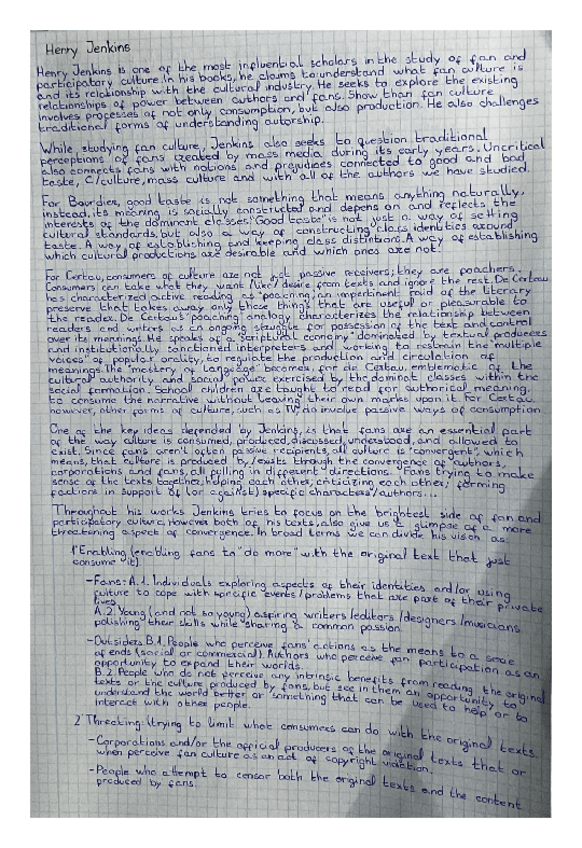 Henry Jenkins
Henry Jenkins is one of the most influential scholars in the study of fan and
participatory culture. In his books, he claims to understand what fan culture is
and its relationship with the cultural industry. He seeks to explore the existing
relationships of power between authors and fans. Show how fan culture
involves processes of not only consumption, but also production. He also challenges
traditional forms of understanding autorship.
While, studying fan culture, Jenkins also seeks to question traditional
perceptions of fans created by mass media during its early years. Uncritical
also connects fans with notions and prejudices connected to good and bad
taste, C/culture, mass culture and with all of the authors we have studied.
For Bourdieu, good taste is not something that means anything naturally,
instead, its meaning is socially constructed and depens on and reflects the
interests of the dominant classes. "Good taste" is not just a way of setting
cultural standards, but also a way of constructing class identities around
taste. A way of establishing and keeping class distintions. A way of establishing
which cultural productions are desirable and which ones are not.
For Certau, consumers of culture are not not passive receivers; they are poachers.
Consumers can take what they want /like/ desire from texts and ignore the rest. De Certau
has characterized active reading as "poaching, an impertinent raid of the literary
preserve that takes away only those things that are useful or pleasurable to
the reader. De Certau's "poaching" analogy characterizes the relationship between
readers and writers as an ongoing struggle for possession of the text and control
over its meanings. He speaks of a "scriptural economy" dominated by textual producers
and institutionally sanctioned interpreters and working to restrain the "multiple
voices" of popular orality, to regulate the production and circulation of
meanings. The "mastery of language" becomes, for de Certau, emblematic of the
cultural authority and social power exercised by the dominat classes within the
social formation. School children are taught to read for authorical meaning,
to consume the narrative without leaving their own marks upon it. For Certau,
however, other forms of culture, such as TV, do involve passive ways of consumption
One of the key ideas defended by Jenkins, is that fans are an essential part
of the way culture is consumed, produced, discussed, understood, and allowed to
exist. Since fans aren't often passive recipients, all culture is "convergent", which
means, that culture is produced by/exists through the convergence of authors,
corporations and fans, all pulling in different directions. Fans trying to make
sense of the texts together, helping each other, criticizing each other, forming
factions in support of (or against) specific characters/authors...
Throughout his works Jenkins tries to focus on the brightest side of fan and
participatory culture. However both of his texts, also give us a glimpse of a more
threatening aspect of convergence. In broad terms we can divide his vision as:
1' Enabling (enabling fans to "do more" with the original text that just
consume it)
-Fans: A.1. Individuals exploring aspects of their identities and/or using
culture to cope with specific events/problems that are part of their private
lives
A.2. Young (and not so young) aspiring writers/editors/designers/musicians
polishing their skills while sharing a common passion.
-Outsiders B.1. People who perceive fans' actions as the means to a
of ends (social or commercial). Authors who perceive fan participation as an
opportunity to expand their worlds.
B.2. People who do not perceive any intrinsic benefits from reading the original
texts or the culture produced by fans, but see in them an opportunity to
understand the world better or something that can be used to help or to
interact with other people.
2' trying to limit what consumers can do with the original texts.
-Corporations and/or the official producers of the original texts that or
when perceive fan culture as an act of copyright
-People who attempt to censor both the original texts and the content
produced by fans.